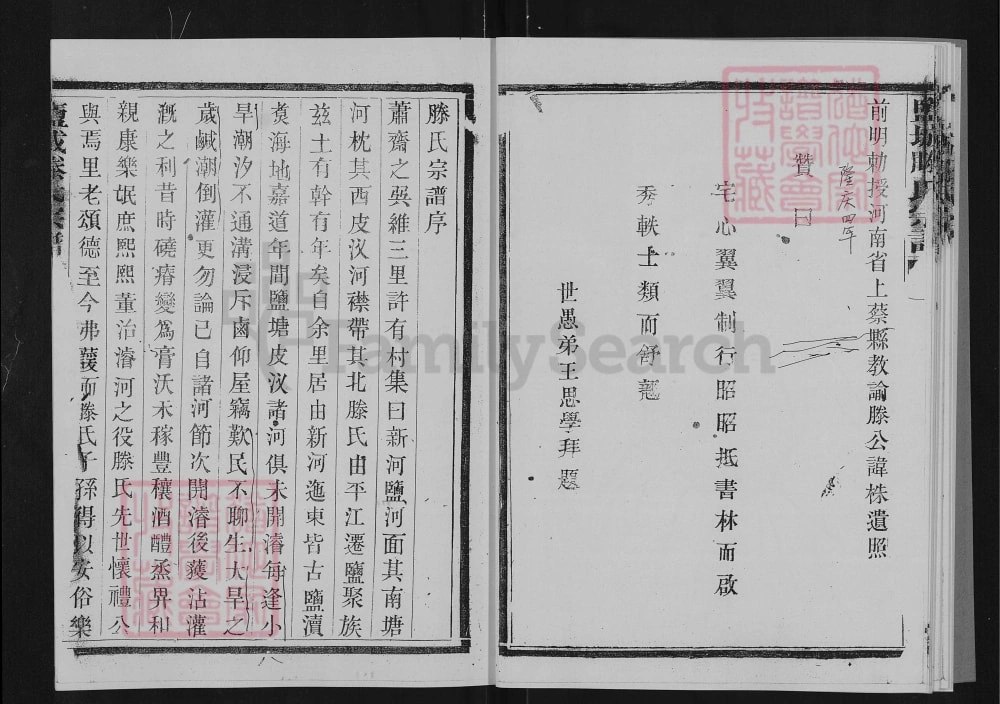 前明勅授河南省上蔡縣教諭滕公諱株遺照
隆庆四年
贊曰
宅心翼翼制行昭昭抵書林而啟
秀軼士類而舒翹
世愚弟王思學拜題
滕氏宗譜序
蕭齋之吳維三里許有村集曰新河鹽河面其南塘
河枕其西皮汊河襟帶其北滕氏由平江遷鹽聚族
茲土有幹有年矣自余里居由新河迤東皆古鹽瀆
煑海地嘉道年間鹽塘皮汊諸河俱未開濬每逢小
旱潮汐不通溝浸斥鹵仰屋竊歎民不聊生大旱之
歲鹹潮倒灌更勿論已自諸河節次開濬後獲沾灌
溉之利昔時磽瘠變爲膏沃禾稼豐穰酒醴烝畀和
親康樂氓庶熙熙董治濬河之役滕氏先世懷禮公
與焉里老頌德至今弗諼而滕氏子孫得以安俗樂
鹽城滕氏宗譜
八
FamilySearch